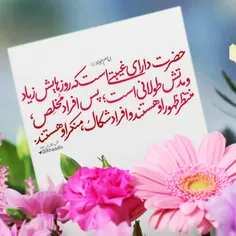 حضرت دارای غیبتی است که روزهایش زیاد
و مدتش طولانی است؛ پس افراد مُخلص،
منتظر ظهور او هستند و افراد شکاک، منکر او هستند.